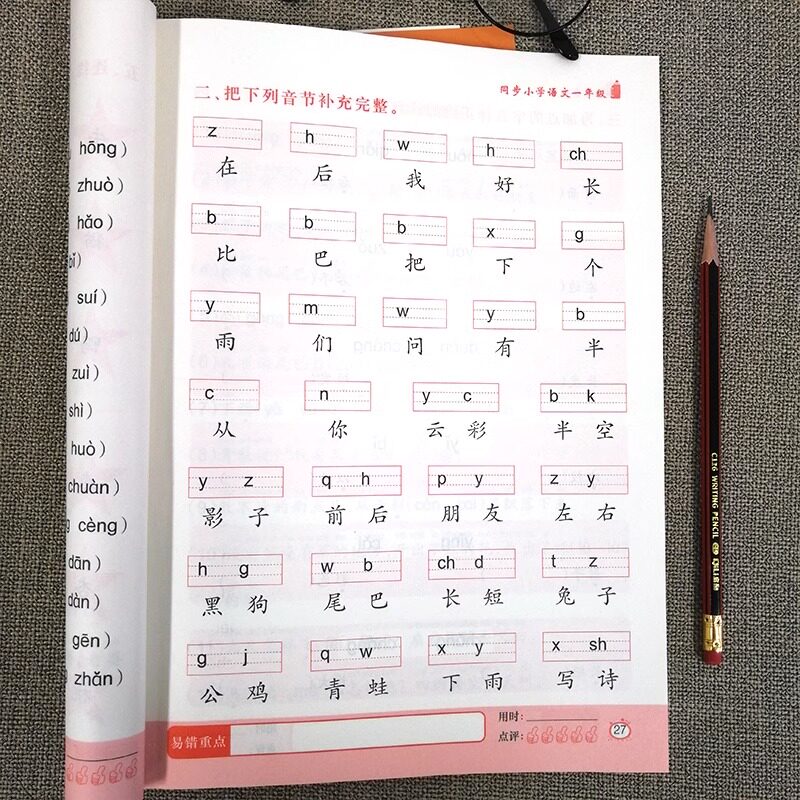 hōng）
zhuò）
hǎo）
suí）
dú）
zuì）
shì）
huò）
chuàn）
cèng）
dān）
dàn）
gēn）
zhǎn）
同步小学语文一年级
二、把下列音节补充完整。
z h w h ch
在 后 我 好 长
b b b x g
比 巴 把 下 个
y m w y b
雨 们 问 有 半
c n y c b k
从 你 云 彩 半 空
y z q h p y z y
影 子 前 后 朋 友 左 右
h g w b ch d t z
黑 狗 尾 巴 长 短 兔 子
g j q w x y x sh
公 鸡 青 蛙 下 雨 写 诗
易错重点
用时：
点评：
27
C126 WRITING PENCIL